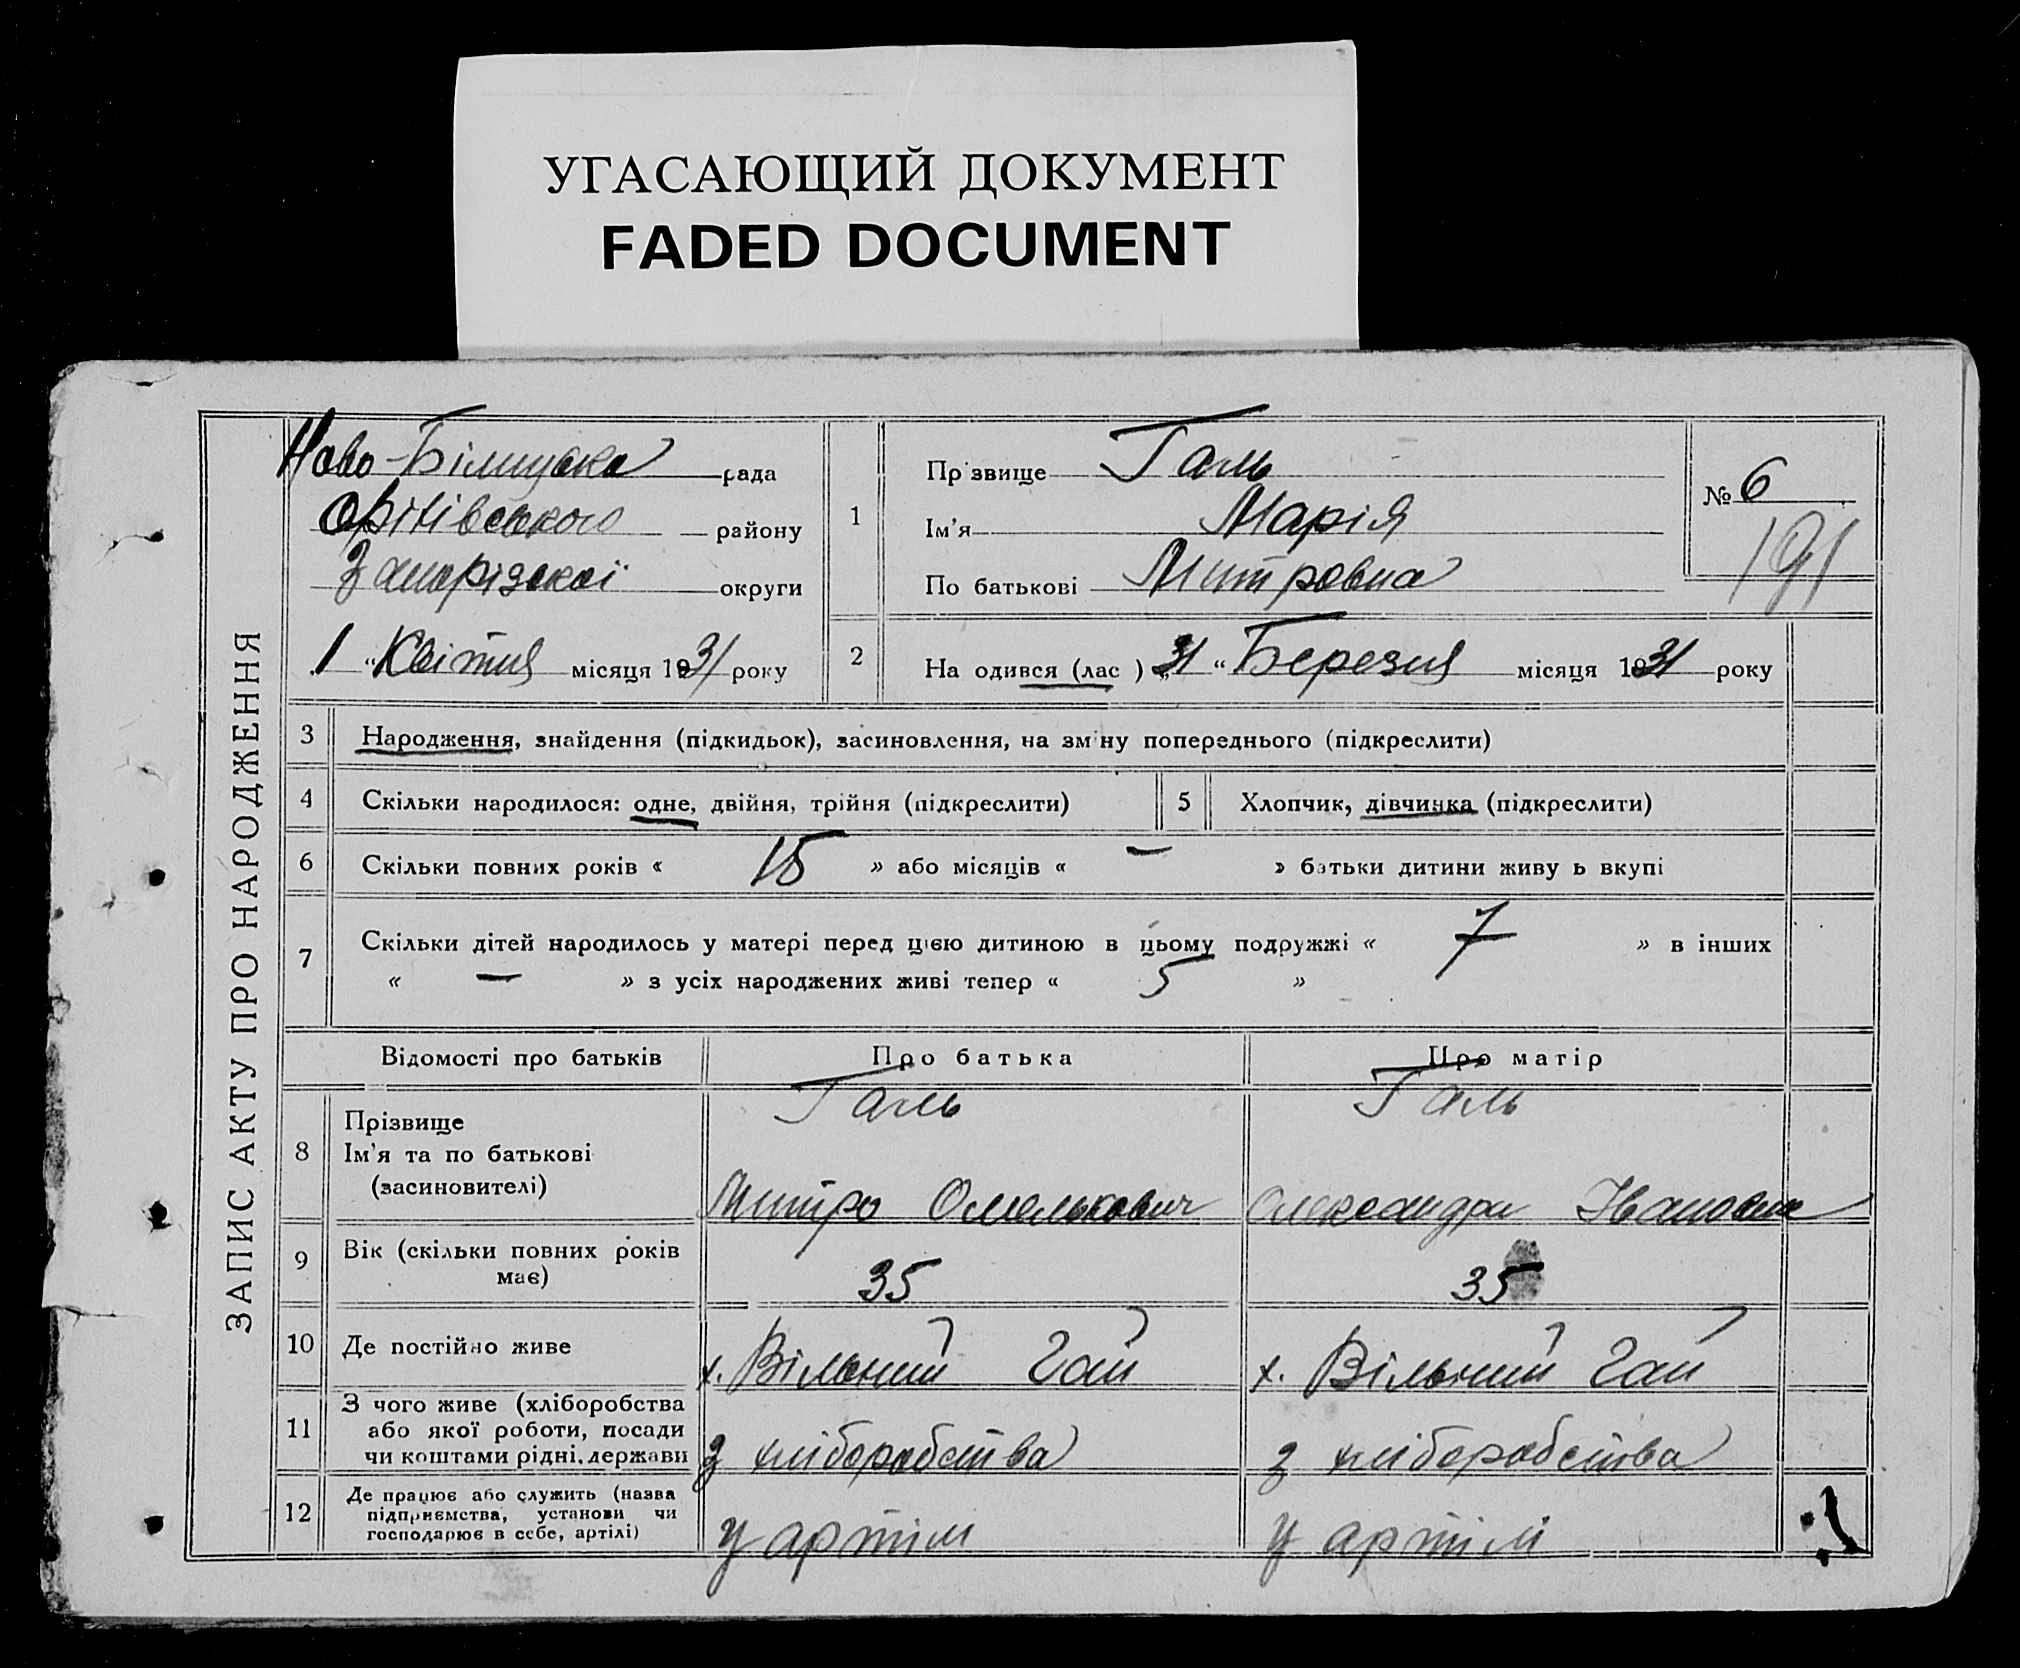 УГАСАЮЩИЙ ДОКУМЕНТ
FADED DOCUMENT
ЗАПИС АКТУ ПРО НАРОДЖЕННЯ
Ново-Білмузька рада
району
Запорізької округи
1 “ Квітня місяця 1931 року
1
Пр звище Галь
Ім'я Марія
По батькові Митровна
№ 6
191
2 На одився (лас ) „ 31 “ Березня місяця 1931 року
3 Народження, знайдення (підкидьок), засиновлення, на зм ну попереднього (підкреслити)
4 Скільки народилося: одне, двійня, трійня (підкреслити) 5 Хлопчик, дівчинка (підкреслити)
6 Скільки повних років « 15 » або місяців « — » батьки дитини живу ь вкупі
7 Скільки дітей народилось у матері перед цією дитиною в цьому подружжі « 7 » в інших
« — » з усіх народжених живі тепер « 5 »
Відомості про батьків Про батька Про матір
8 Прізвище Галь Галь
Ім'я та по батькові
(засиновителі) Митро Омелькович Олександра Івановна
9 Вік (скільки повних років
має) 35 35
10 Де постійно живе х. Вільний Гай х. Вільний Гай
11 З чого живе (хліборобства
або якої роботи, посади
чи коштами рідні, держави з хліборобства з хліборобства
12 Де працює або служить (назва
підприємства, установи чи
господарює в себе, артілі) у артіли у артілі